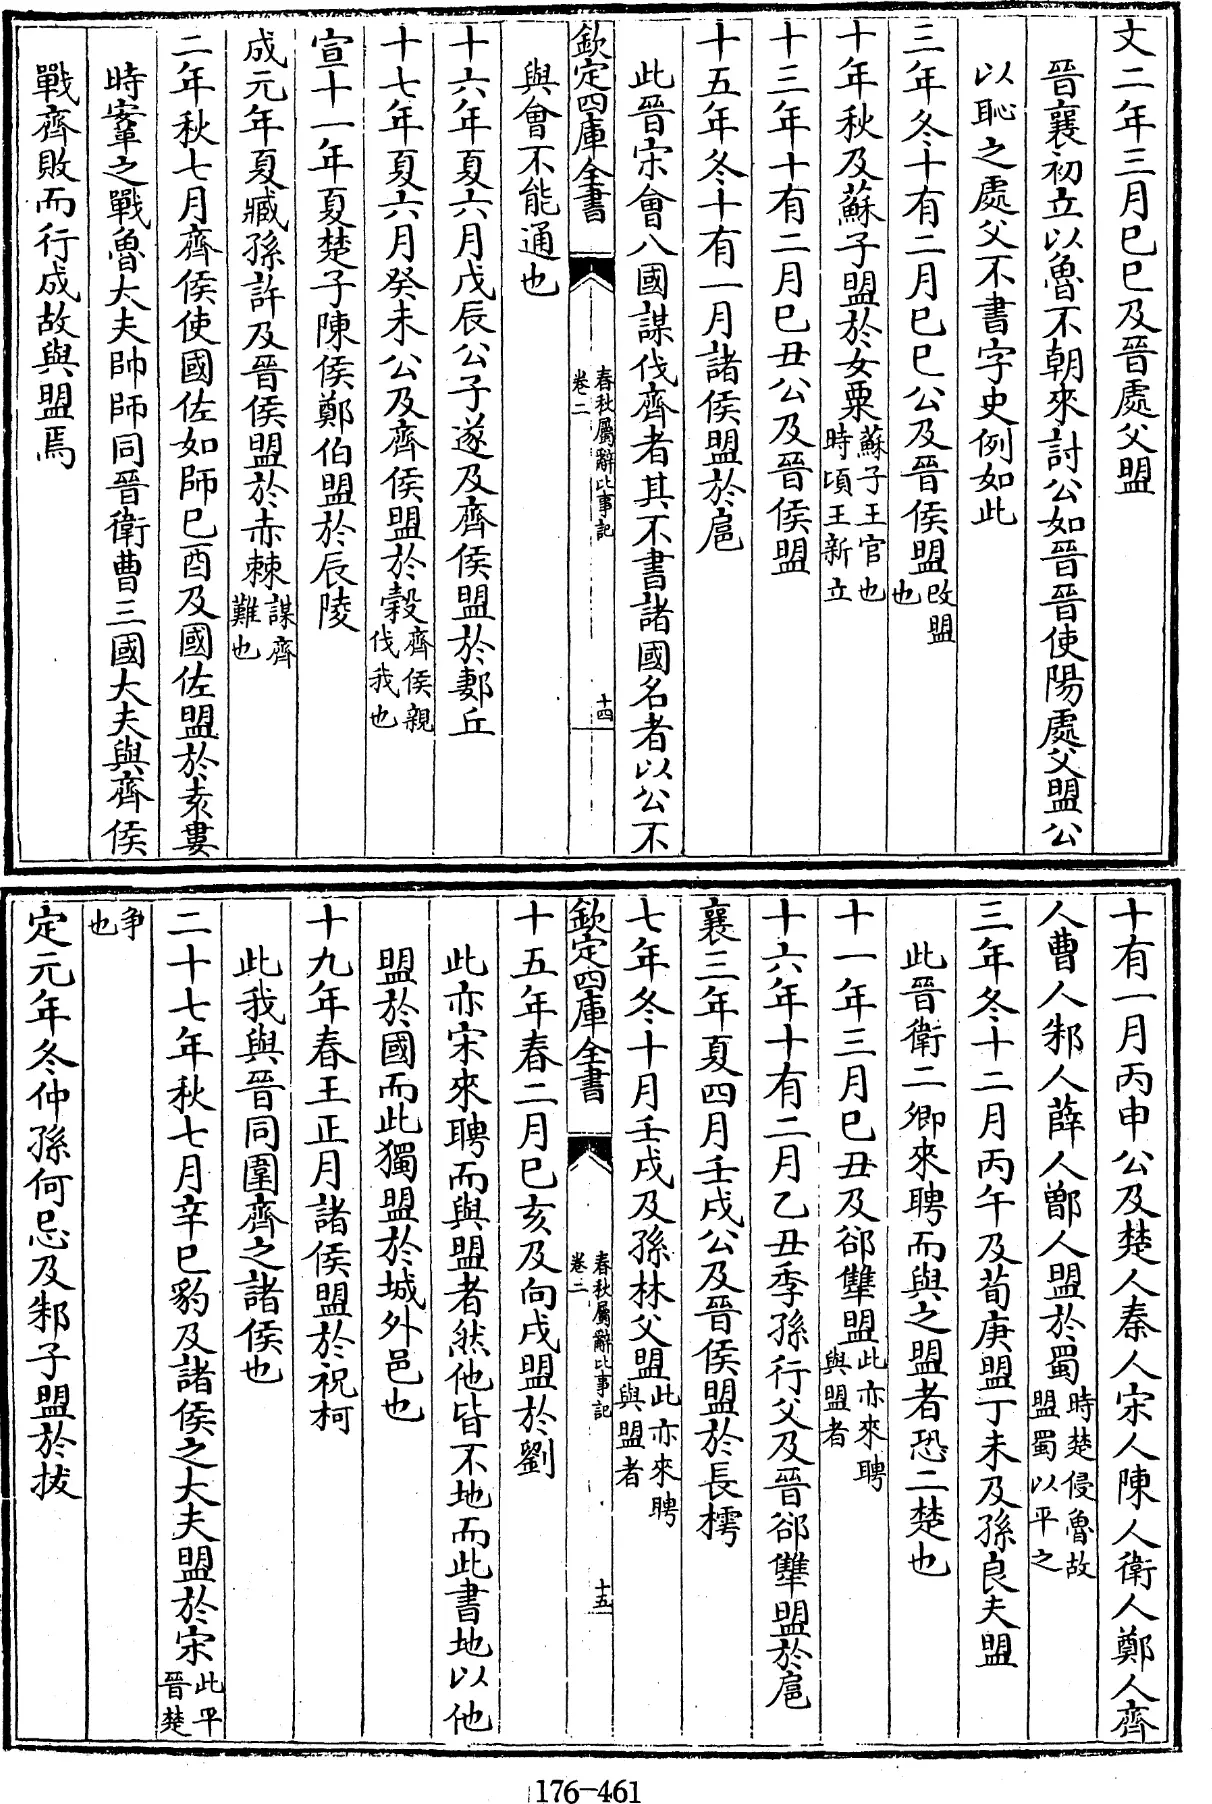 文二年三月巳巳及晉處父盟
晉襄初立以魯不朝來討公如晉晉使陽處父盟公
以恥之處父不書字史例如此
三年冬十有二月巳巳公及晉侯盟改盟也
十年秋及蘇子盟於女栗蘇子王官也時頃王新立
十三年十有二月巳丑公及晉侯盟
十五年冬十有一月諸侯盟於扈
此晉宋會八國謀伐齊者其不書諸國名者以公不
欽定四庫全書
春秋屬辭比事記
卷二
十四
與會不能通也
十六年夏六月戊辰公子遂及齊侯盟於郪丘
十七年夏六月癸未公及齊侯盟於穀齊侯親伐我也
宣十一年夏楚子陳侯鄭伯盟於辰陵
成元年夏臧孫許及晉侯盟於赤棘謀齊難也
二年秋七月齊侯使國佐如師巳酉及國佐盟於袁婁
時鞌之戰魯大夫帥師同晉衛曹三國大夫與齊侯
戰齊敗而行成故與盟焉
十有一月丙申公及楚人秦人宋人陳人衛人鄭人齊
人曹人邾人薛人鄫人盟於蜀時楚侵魯故盟蜀以平之
三年冬十二月丙午及荀庚盟丁未及孫良夫盟
此晉衛二卿來聘而與之盟者恐二楚也
十一年三月巳丑及郤犨盟此亦來聘與盟者
十六年十有二月乙丑季孫行父及晉郤犨盟於扈
襄三年夏四月壬戌公及晉侯盟於長樗
七年冬十月壬戌及孫林父盟此亦來聘與盟者
欽定四庫全書
春秋屬辭比事記
卷二
十五
十五年春二月巳亥及向戌盟於劉
此亦宋來聘而與盟者然他皆不地而此書地以他
盟於國而此獨盟於城外邑也
十九年春王正月諸侯盟於祝柯
此我與晉同圍齊之諸侯也
二十七年秋七月辛巳豹及諸侯之大夫盟於宋此平晉楚
爭也
定元年冬仲孫何忌及邾子盟於拔
176-461